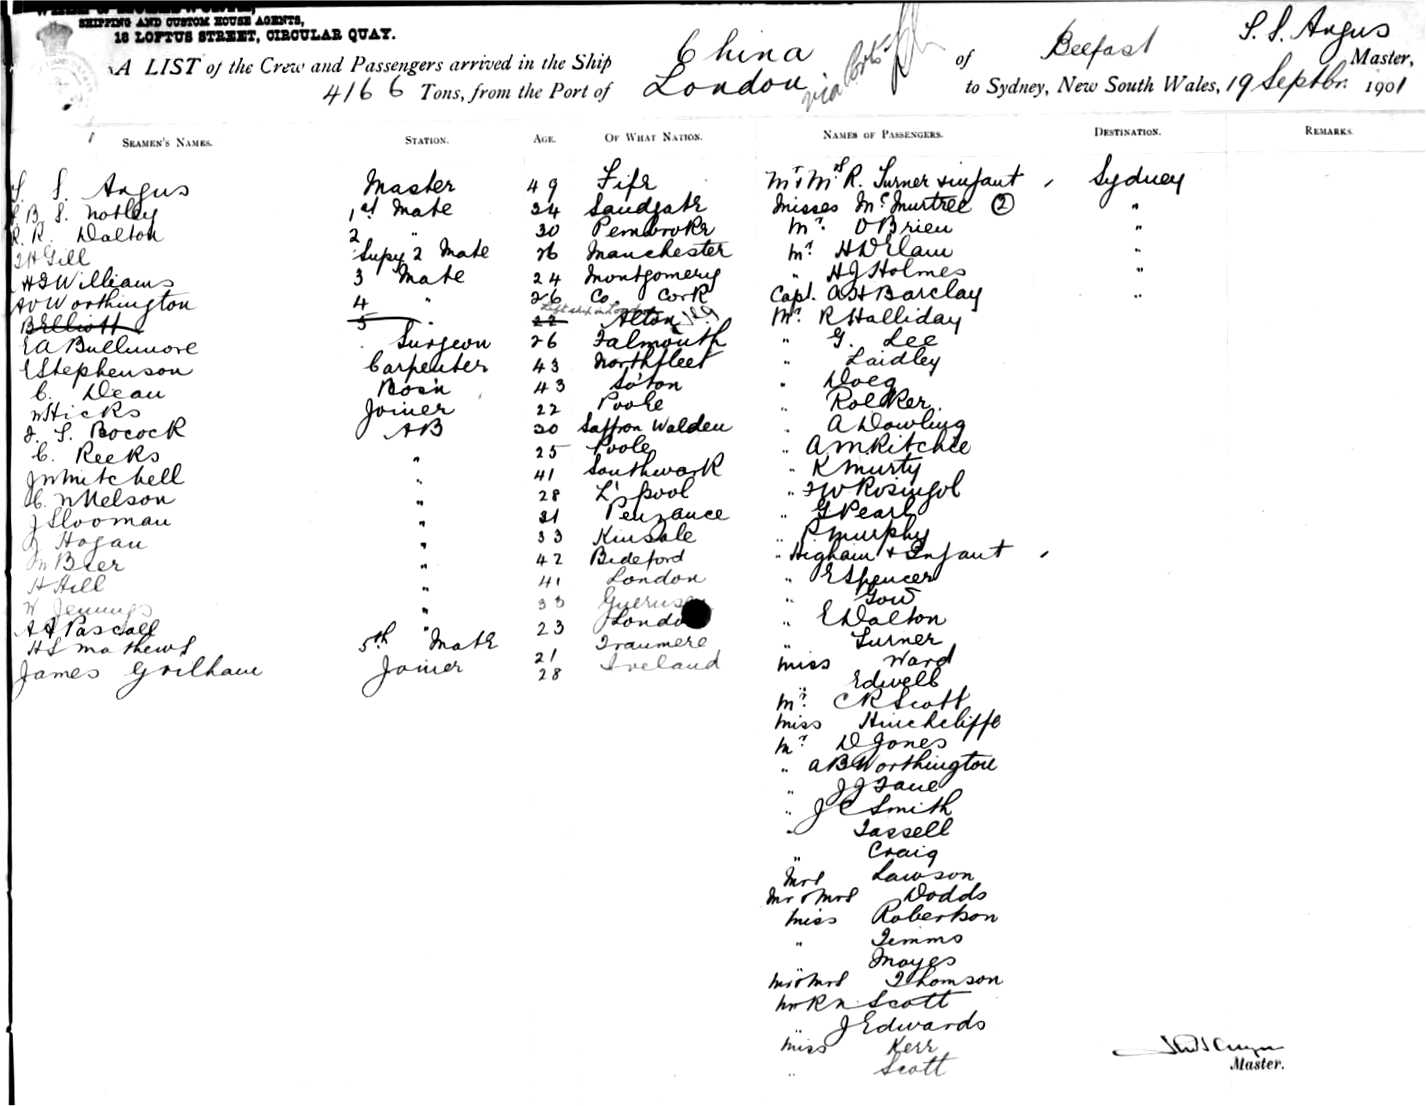 SHIPPING AND CUSTOM HOUSE AGENTS,
16 LOFTUS STREET, CIRCULAR QUAY.
A LIST of the Crew and Passengers arrived in the Ship China of Belfast S. S. Angus Master,
4166 Tons, from the Port of London via Ports to Sydney, New South Wales, 19 Septbr. 1901
SEAMEN'S NAMES. STATION. AGE. OF WHAT NATION. NAMES OF PASSENGERS. DESTINATION. REMARKS.
S. Angus Master 49 Fife
B. S. Notley 1st Mate 34 Sandgate
R. R. Dalton 2 " 30 Pembroke
Gill Supy 2 Mate 26 Manchester
Williams 3 Mate 24 Montgomery
Worthington 4 " 26 Co. Cork
Left ship in London
B Elliott 5 " 22 Alton
EA Bullmore Surgeon 26 Falmouth
Stephenson Carpenter 43 Northfleet
C. Dean Bos'n 43 So'ton
W Hicks Joiner 22 Poole
S. Bocock AB 30 Saffron Walden
C. Reeks " 25 Poole
J W Mitchell " 41 Southwark
C. N Nelson " 28 L'pool
J Slooman " 21 Penzance
J Hogan " 33 Kinsale
Beer " 42 Bideford
H Hill " 41 London
W Jennings " 33 Guernsey
Pascall " 23 London
H S Mathews 5th Mate 21 Tranmere
James Joiner 28 Ireland
Mr & Mrs R. Turner & infant Sydney
Misses McMurtree (2) "
Mr. O'Brien "
Mr. H D Elam "
" H J Holmes "
Capt. A H Barclay "
Mr. R Halliday
" G. Lee
" Laidley
" Doeg
" Roelker.
" A Dowling
" A M Ritchie
" K Murty
" Rosingol
" G Pearl
" P. Murphy
" Higham & Infant
" E Spencer
" Gow
" E Dalton
" Turner
Miss Ward
" Edwell
Mr. C R Scott
Miss Hinchcliffe
Mr. D Jones
" A B Worthington
" J J Fane
" J C Smith
" Tassell
" Craig
Mrs Lawson
Mr & Mrs Dodds
Miss Robertson
" Timms
" Moyes
Mr & Mrs Thomson
Mr R N Scott
" J Edwards
Miss Kerr
" Scott
Master.